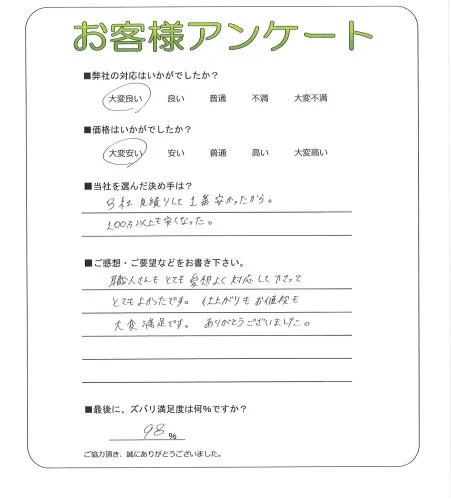 お客様アンケート
■弊社の対応はいかがでしたか?
大変良い 良い 普通 不満 大変不満
■価格はいかがでしたか?
大変安い 安い 普通 高い 大変高い
■当社を選んだ決め手は?
3社見積りして1番安かったから。
100万以上も安くなった。
■ご感想・ご要望などをお書き下さい。
職人さんもとても愛想よく対応して下さって
とてもよかったです。仕上がりもお値段も
大変満足です。ありがとうございました。
■最後に、ズバリ満足度は何%ですか?
98%
ご協力頂き、誠にありがとうございました。